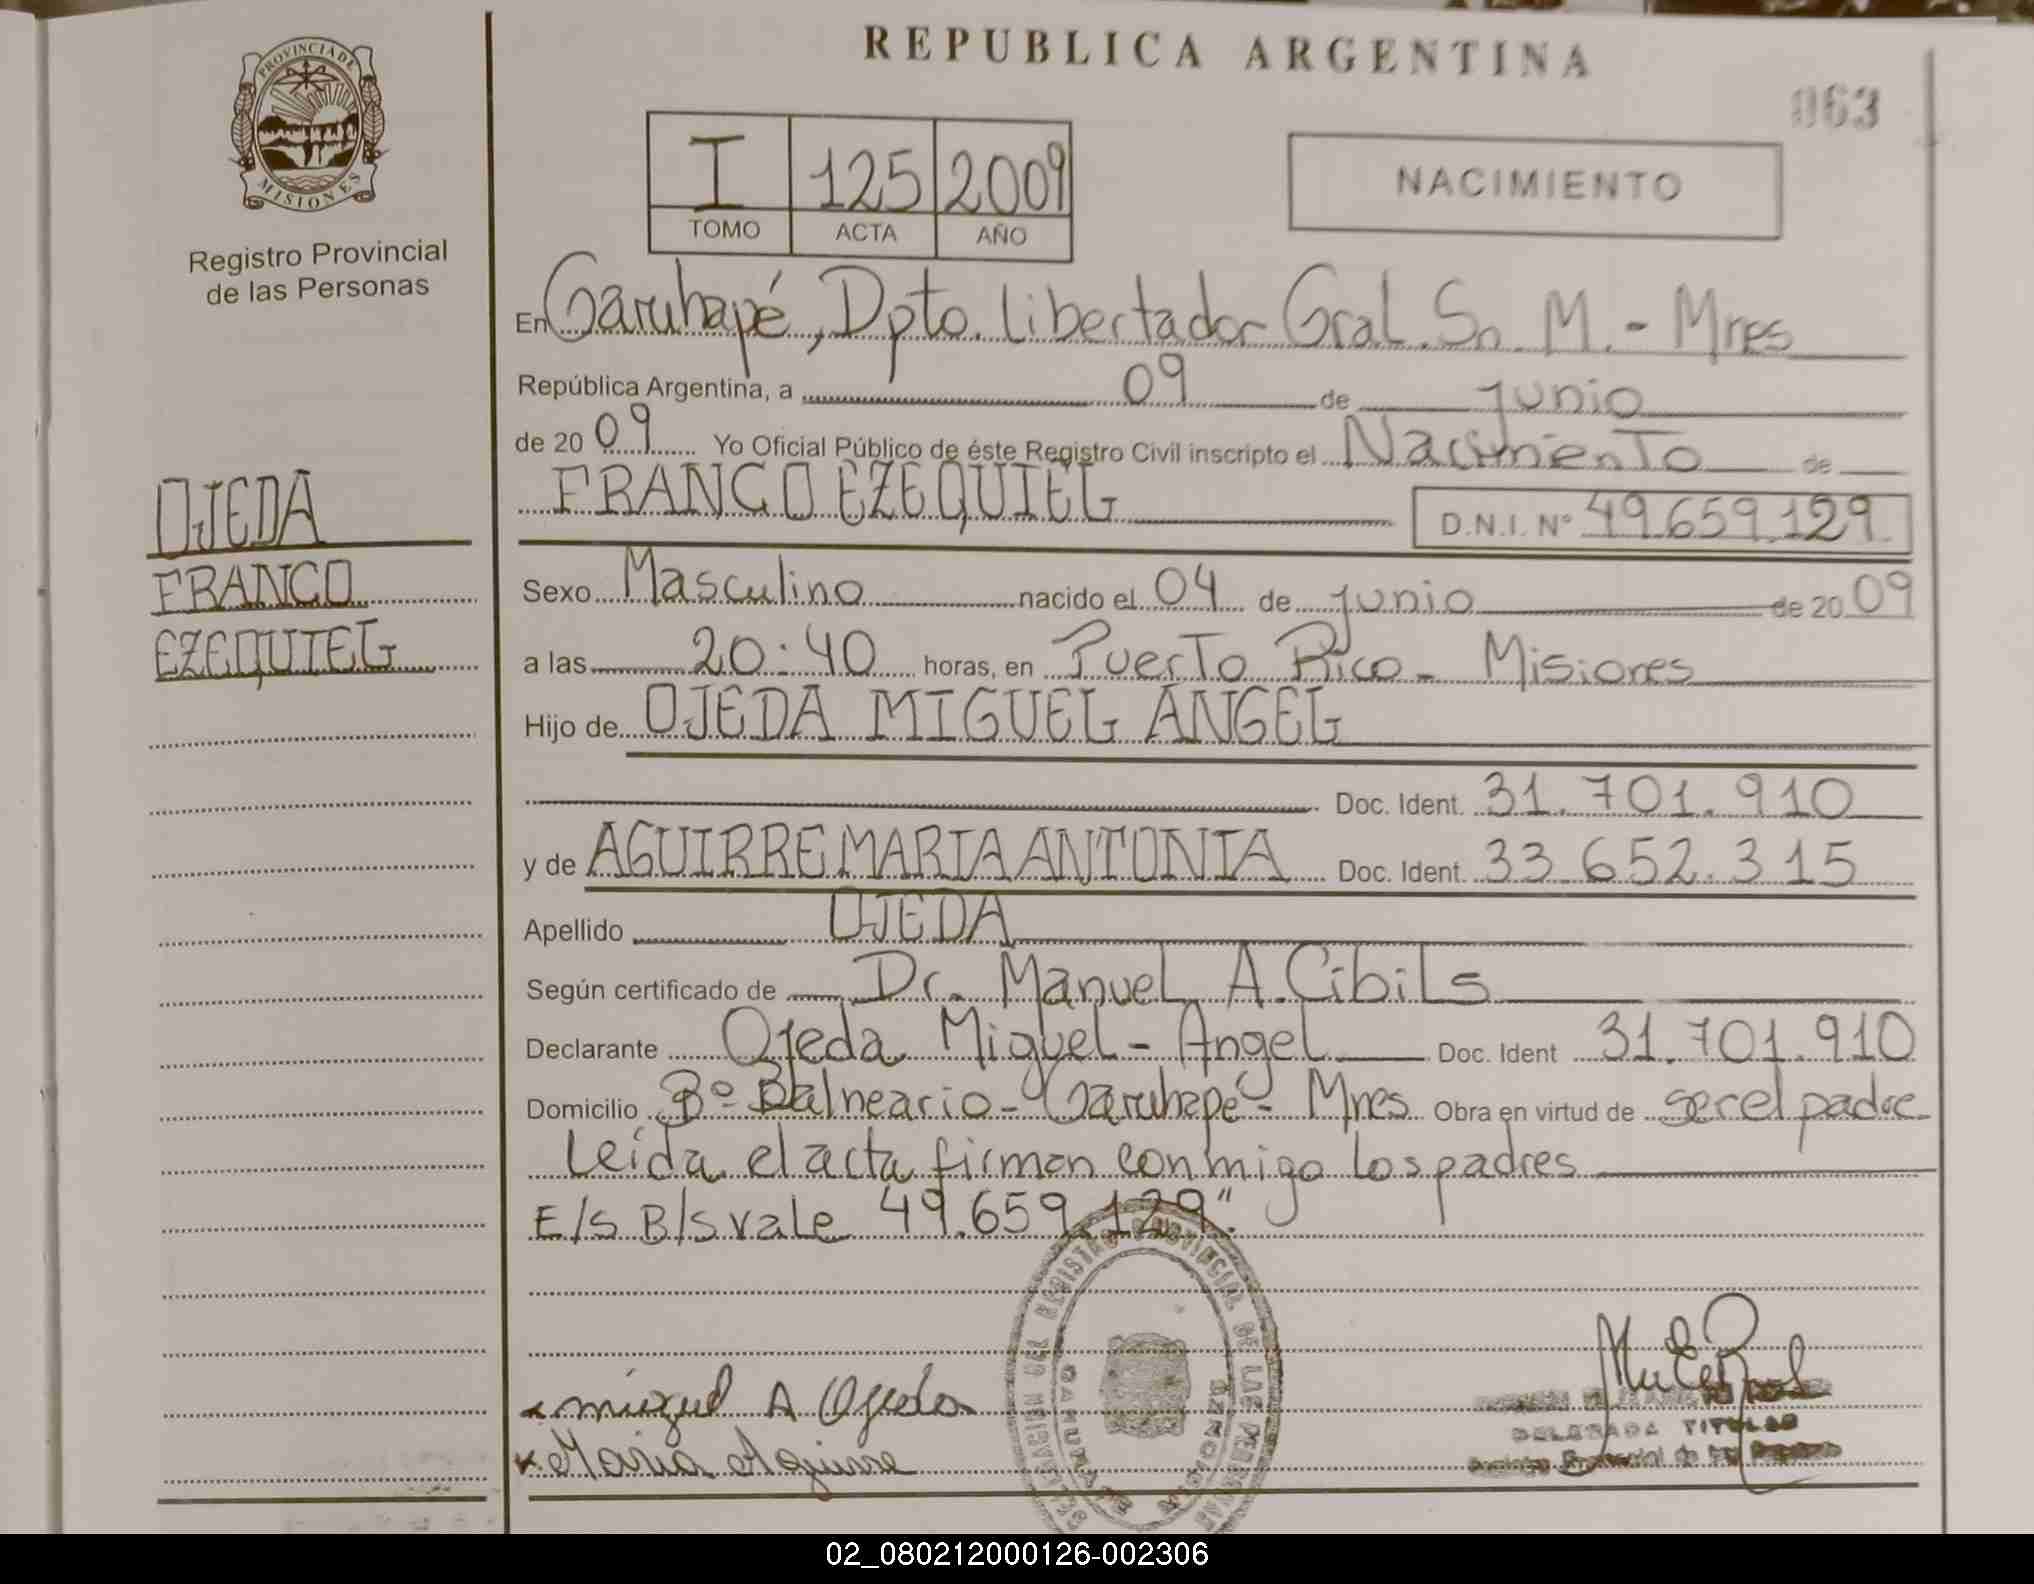 REPUBLICA ARGENTINA
063
PROVINCIA DE
MISIONES
Registro Provincial
de las Personas
I 125 2009
TOMO ACTA AÑO
NACIMIENTO
En Garuhapé, Dpto. Libertador Gral. Sn. M. - Mnes
República Argentina, a 09 de junio
de 2009 Yo Oficial Público de éste Registro Civil inscripto el Nacimiento de
FRANCO EZEQUIEL D.N.I. Nº 49.659.129
OJEDA
FRANCO
EZEQUIEL
Sexo Masculino nacido el 04 de junio de 2009
a las 20:40 horas, en Puerto Rico - Misiones
Hijo de OJEDA MIGUEL ANGEL
Doc. Ident. 31.701.910
y de AGUIRRE MARIA ANTONIA Doc. Ident. 33.652.315
Apellido OJEDA
Según certificado de Dr. Manuel A. Cibils
Declarante Ojeda Miguel - Angel Doc. Ident 31.701.910
Domicilio Bº Balneario - Garuhapé - Mnes Obra en virtud de ser el padre
Leída el acta firman conmigo los padres
E/S B/S vale 49.659.129".
REGISTRO PROVINCIAL DE LAS PERSONAS
GARUHAPE
MISIONES
Miguel A Ojeda
Maria Aguirre
DELEGADA TITULAR
02_080212000126-002306